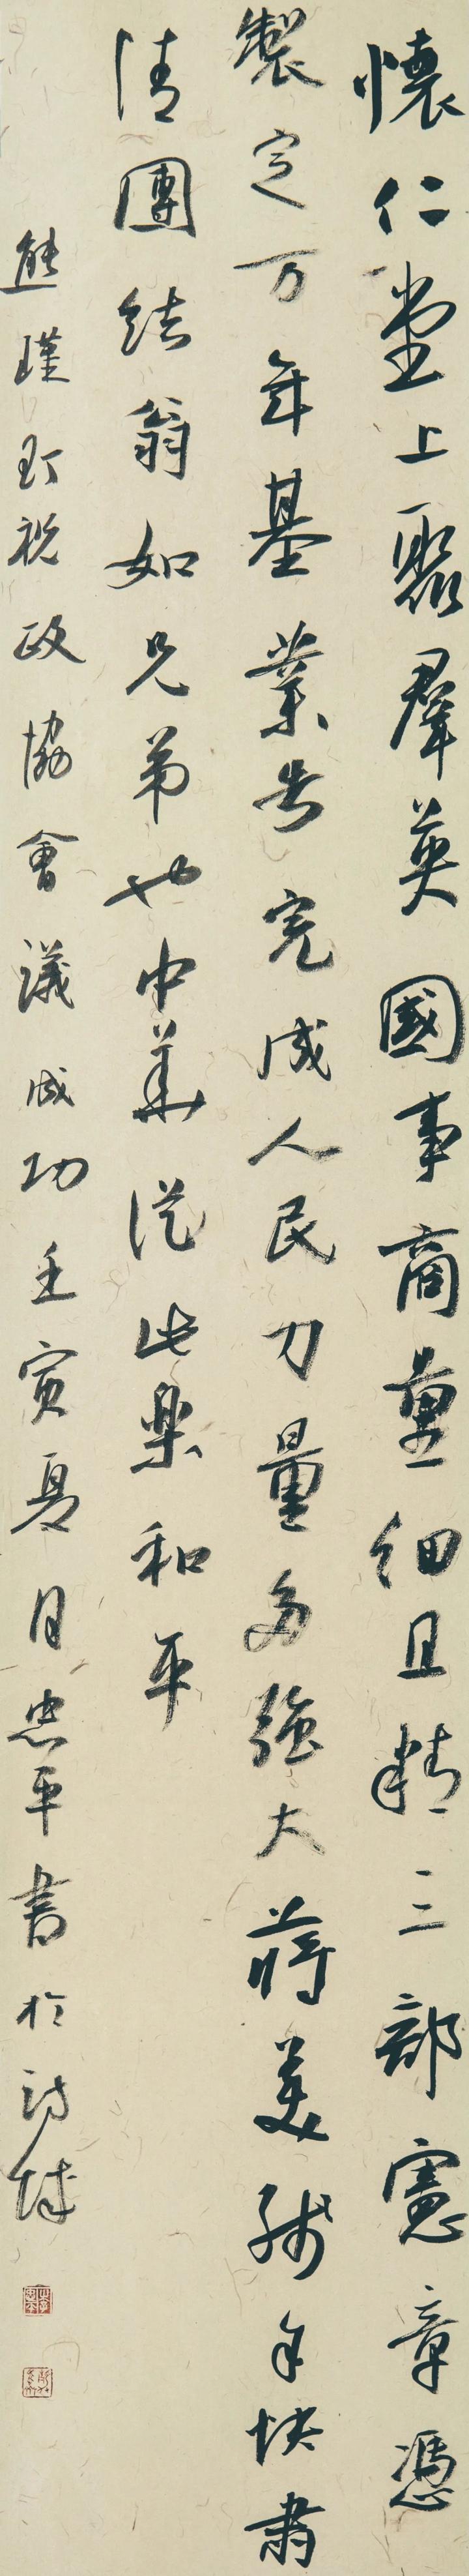 懷仁堂上聚群英國事商量細且精三部憲章憑
製定万年基業告完成人民力量多強大蔣美殘余快肅
清團結翁如兄弟也中華從此樂和平
熊瑾玎祝政協會議成功壬寅夏月忠平書於詩城